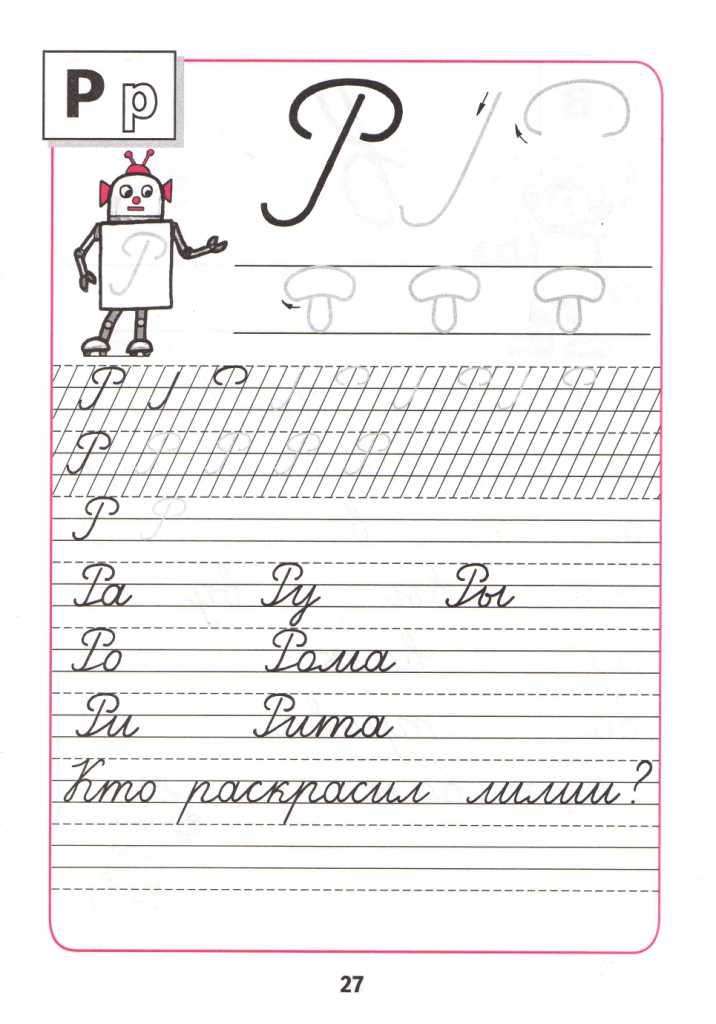 Р р
Р
Р
Р
Р Р Р Р Р
Р Р
Ра Ру Ры
Ро Рома
Ри Рита
Кто раскрасил лилии?
27